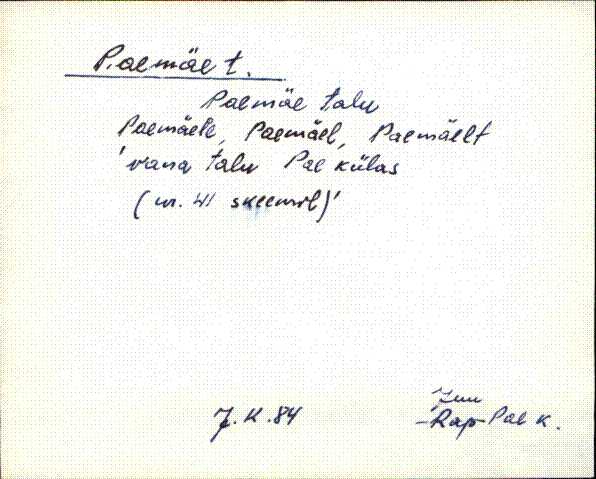 Paemäe t.
Paemäe talu
Paemäele, Paemäel, Paemäelt
'vana talu Pae külas
(nr. 41 skeemil)'
Juu
J.K.84 Rap Pae k.